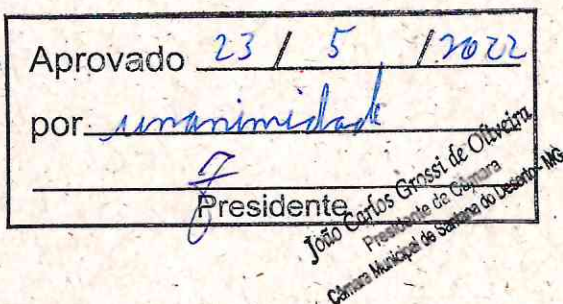 Aprovado 23 / 5 / 2022
por unanimidade
Presidente
João Carlos Grossi de Oliveira
Presidente da Câmara
Câmara Municipal de Santana do Deserto - MG